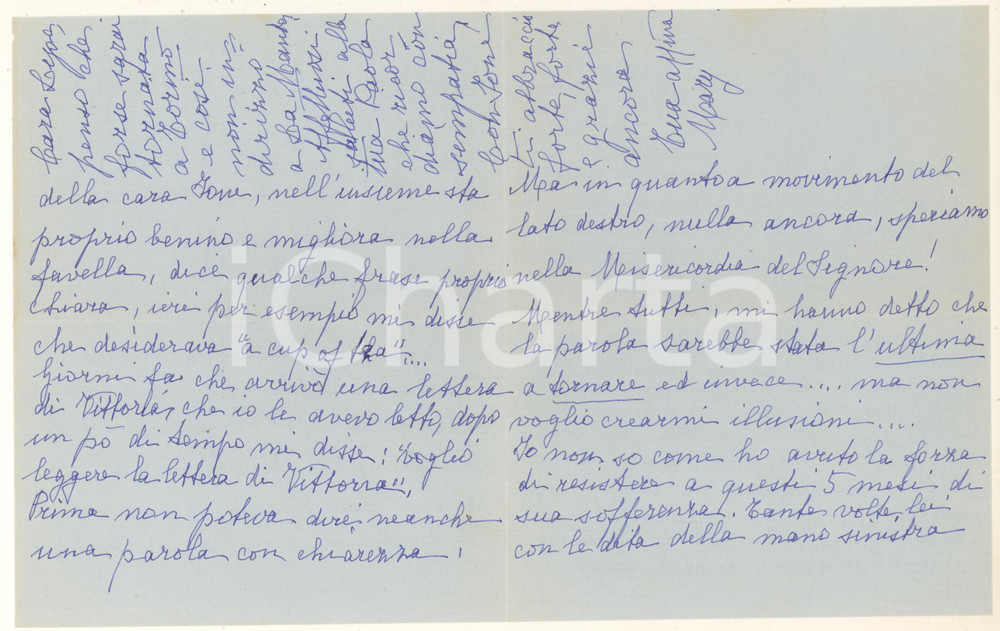 della cara Ione, nell'insieme sta
proprio benino e migliora nella
favella, dice qualche frase proprio
chiara, ieri per esempio mi disse
che desiderava "a cup of tea"....
Giorni fa che arrivò una lettera
di Vittoria, che io le avevo letto, dopo
un pò di tempo mi disse: "voglio
leggere la lettera di Vittoria",
Prima non poteva dire neanche
una parola con chiarezza.
Ma in quanto a movimento del
lato destro, nulla ancora, speriamo
nella Misericordia del Signore!
Mentre tutti, mi hanno detto che
la parola sarebbe stata l'ultima
a tornare ed invece .... ma non
voglio crearmi illusioni....
Io non so come ho avuto la forza
di resistere a questi 5 mesi di
sua sofferenza. Tante volte lei
con le dita della mano sinistra
Cara
penso che
forse sarai
tornata
a Torino
e così
non in=
dirizzo
a La Manta
Affettuosi
saluti alla
tua Paola
che ricor=
diamo con
simpatia,
Con Ione,
ti abbraccio
forte, forte,
e grazie
ancora
Tua aff.ma
Mary
iCharta